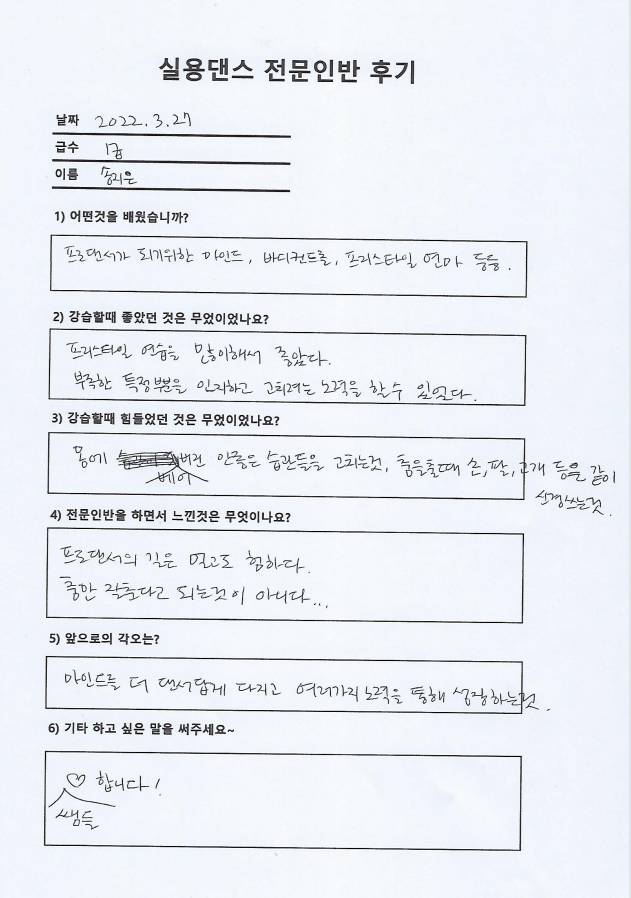 실용댄스 전문인반 후기
날짜 2022.3.27
급수 1급
이름 송지은
1) 어떤것을 배웠습니까?
프로댄서가 되기위한 마인드, 바디컨트롤, 프리스타일 연마 등등.
2) 강습할때 좋았던 것은 무엇이었나요?
프리스타일 연습을 많이해서 좋았다.
부족한 특정부분을 인지하고 고치려는 노력을 할수 있었다.
3) 강습할때 힘들었던 것은 무엇이었나요?
몸에 베어버린 안좋은 습관들을 고치는것, 춤을출때 손,팔,고개 등을 같이
신경쓰는것.
4) 전문인반을 하면서 느낀것은 무엇이나요?
프로댄서의 길은 멀고도 험하다.
춤만 잘춘다고 되는것이 아니다...
5) 앞으로의 각오는?
마인드를 더 댄서답게 다지고 여러가지 노력을 통해 성장하는것.
6) 기타 하고 싶은 말을 써주세요~
쌤들 ♡ 합니다!